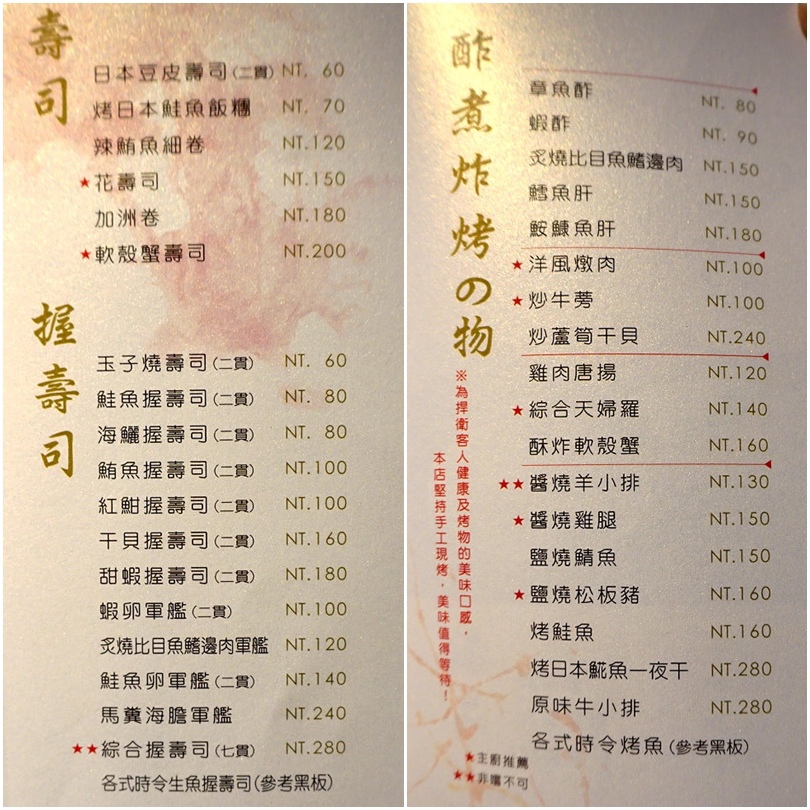 壽司
日本豆皮壽司(二貫) NT. 60
烤日本鮭魚飯糰 NT. 70
辣鮪魚細卷 NT.120
★花壽司 NT.150
加洲卷 NT.180
★軟殼蟹壽司 NT.200
握壽司
玉子燒壽司(二貫) NT. 60
鮭魚握壽司(二貫) NT. 80
海鱺握壽司(二貫) NT. 80
鮪魚握壽司(二貫) NT.100
紅魽握壽司(二貫) NT.100
干貝握壽司(二貫) NT.160
甜蝦握壽司(二貫) NT.180
蝦卵軍艦(二貫) NT.100
炙燒比目魚鰭邊肉軍艦 NT.120
鮭魚卵軍艦(二貫) NT.140
馬糞海膽軍艦 NT.240
★★綜合握壽司(七貫) NT.280
各式時令生魚握壽司(參考黑板)
酢煮炸烤の物
章魚酢 NT. 80
蝦酢 NT. 90
炙燒比目魚鰭邊肉 NT.150
鱈魚肝 NT.150
鮟鱇魚肝 NT.180
★洋風燉肉 NT.100
★炒牛蒡 NT.100
炒蘆筍干貝 NT.240
雞肉唐揚 NT.120
★綜合天婦羅 NT.140
酥炸軟殼蟹 NT.160
★★醬燒羊小排 NT.130
★醬燒雞腿 NT.150
鹽燒鯖魚 NT.150
★鹽燒松板豬 NT.160
烤鮭魚 NT.160
烤日本鯱魚一夜干 NT.280
原味牛小排 NT.280
各式時令烤魚(參考黑板)
※為捍衛客人健康及烤物的美味口感，
本店堅持手工現烤，美味值得等待！
★主廚推薦
★★非嚐不可